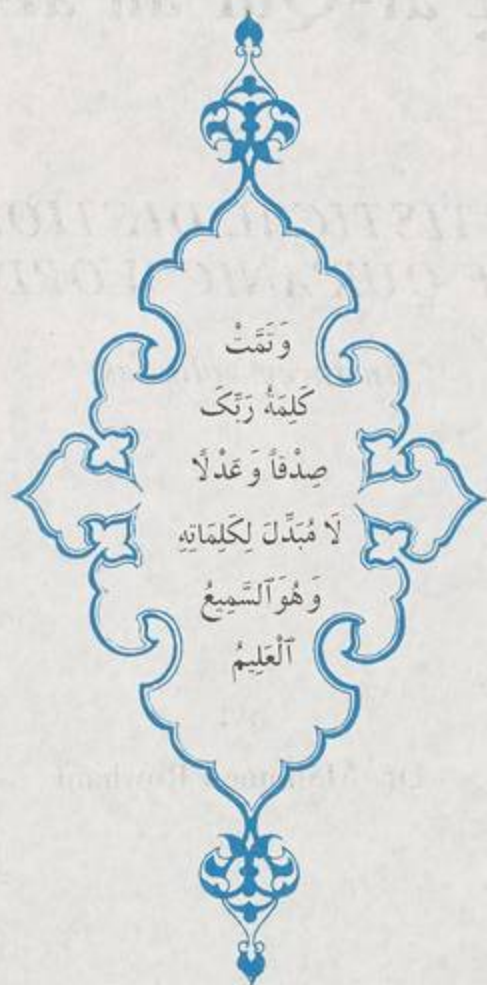 وَ تَمَّتْ
كَلِمَةُ رَبِّکَ
صِدْقاً وَ عَدْلًا
لَا مُبَدِّلَ لِکَلِمَاتِهِ
وَ هُوَ ٱلسَّمِيعُ
ٱلْعَلِيمُ